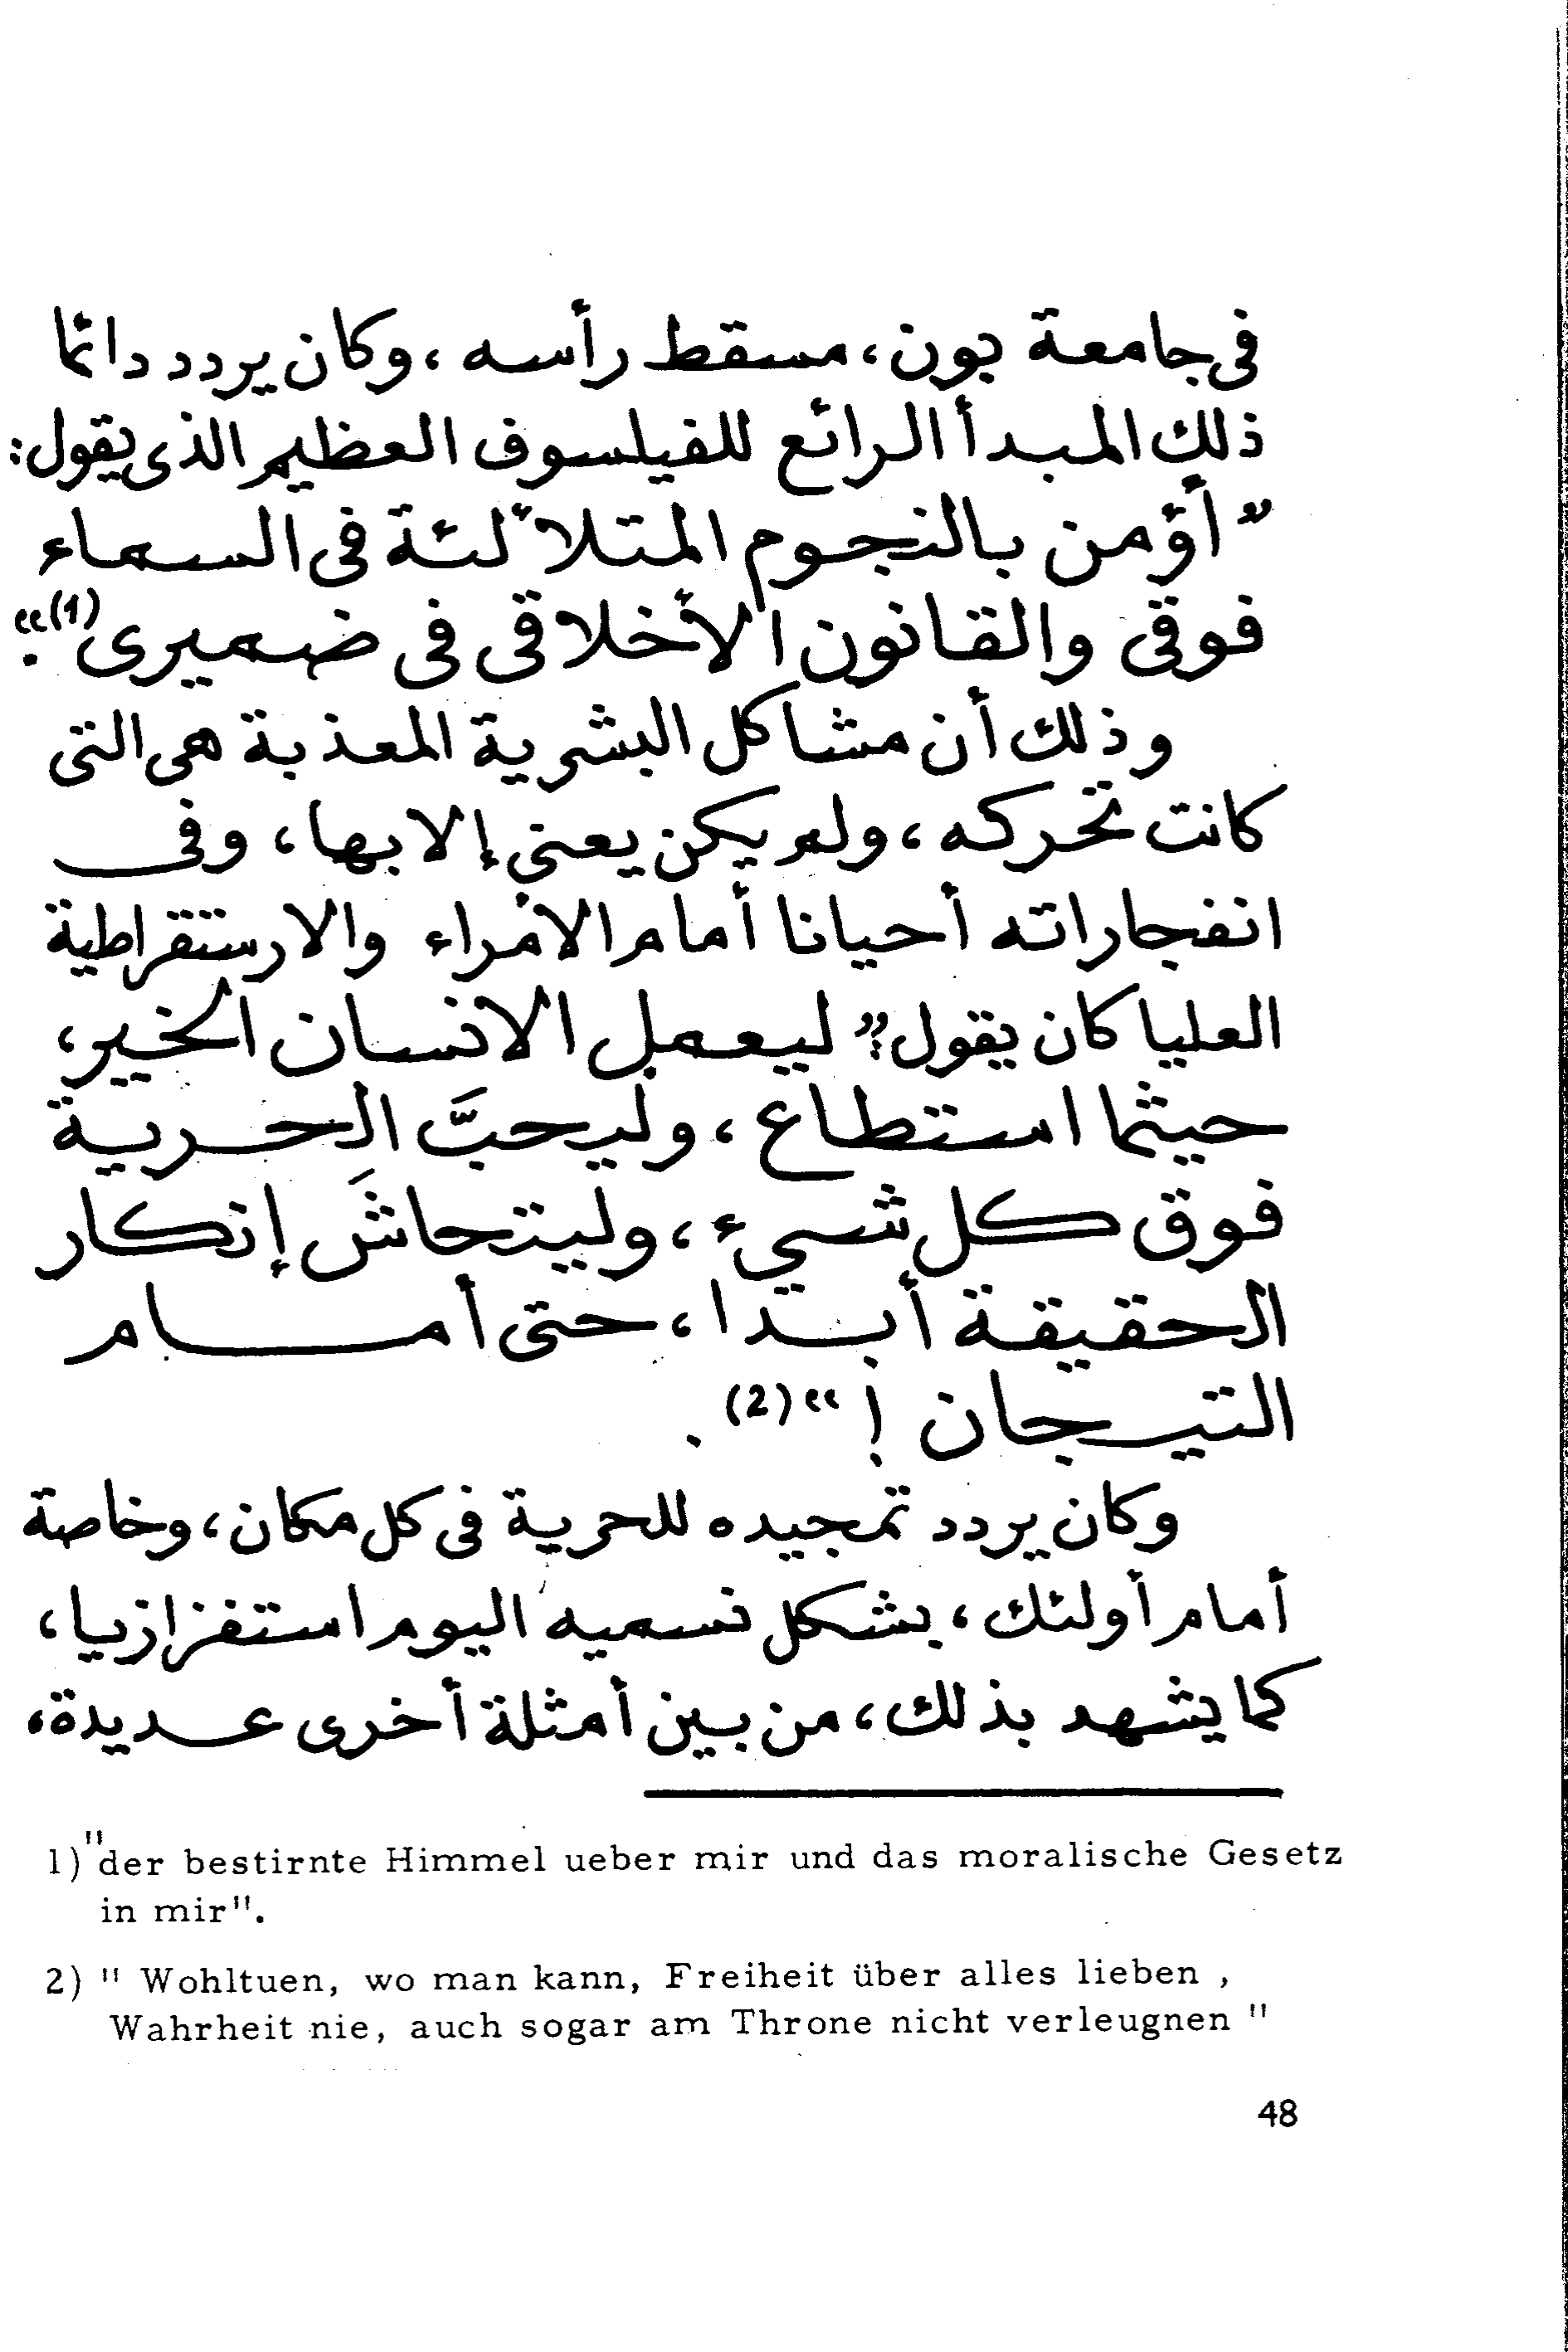 فى جامعة بون، مسقط رأسه، وكان يردد دائما
ذلك المبدأ الرائع للفيلسوف العظيم الذى يقول:
”أؤمن بالنجوم المتلألئة فى السماء
فوقى والقانون الأخلاقى فى ضميرى(1)“.
وذلك أن مشاكل البشرية المعذبة هى التى
كانت تحركه، ولم يكن يعنى إلا بها، وفى
انفجاراته أحيانا أمام الأمراء والارستقراطية
العليا كان يقول: ”ليعمل الانسان الخير،
حيثما استطاع، وليحبَّ الحرية
فوق كل شيء، وليتحاشَ إنكار
الحقيقة أبدا، حتى أمام
التيجان !“(2).
وكان يردد تمجيده للحرية فى كل مكان، وخاصة
أمام أولئك، بشكل نسميه اليوم استفزازيا،
كما يشهد بذلك، من بين أمثلة أخرى عديدة،
1) "der bestirnte Himmel ueber mir und das moralische Gesetz
in mir".
2) " Wohltuen, wo man kann, Freiheit über alles lieben ,
Wahrheit nie, auch sogar am Throne nicht verleugnen "
48